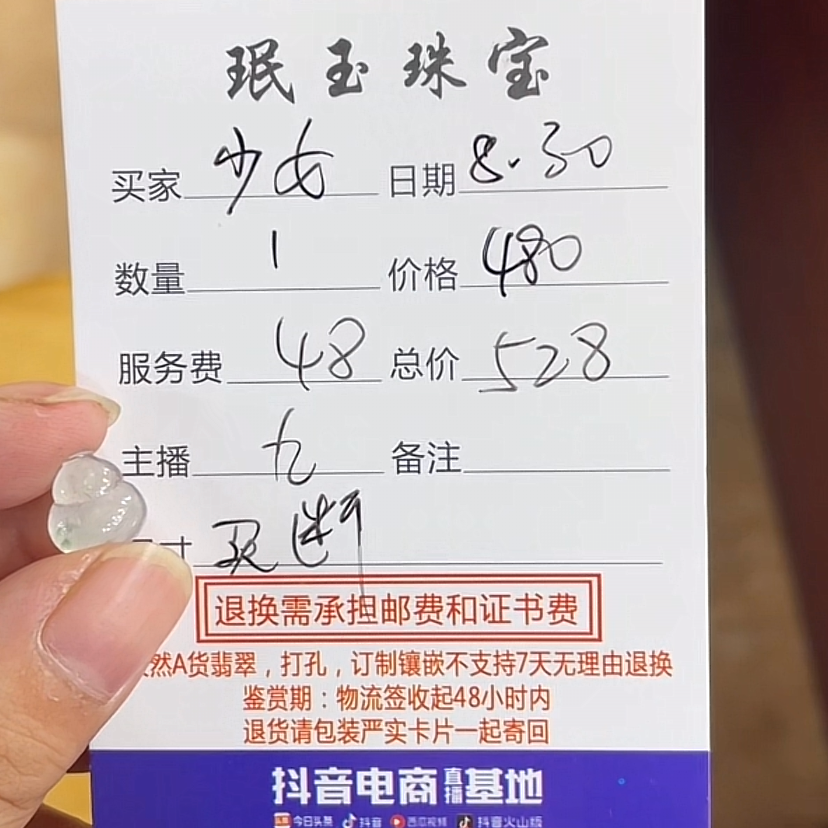 珉玉珠宝
买家 少女 日期 8.30
数量 1 价格 480
服务费 48 总价 528
主播 九 备注
寸 买断
退换需承担邮费和证书费
然A货翡翠，打孔，订制镶嵌不支持7天无理由退换
鉴赏期：物流签收起48小时内
退货请包装严实卡片一起寄回
抖音电商直播基地
头条 今日头条 抖音 西瓜视频 抖音火山版